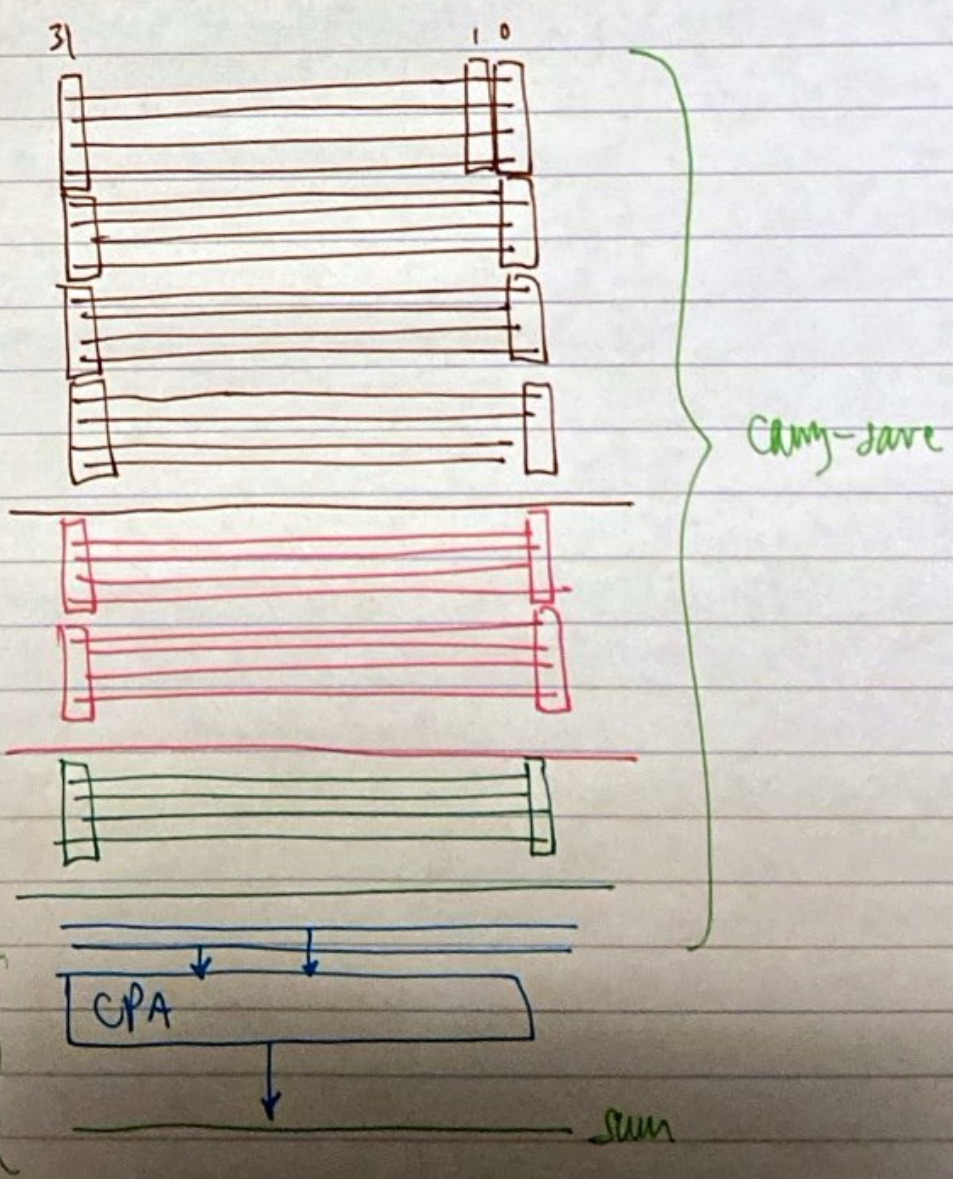 31 1 0
carry-save
CPA
sum